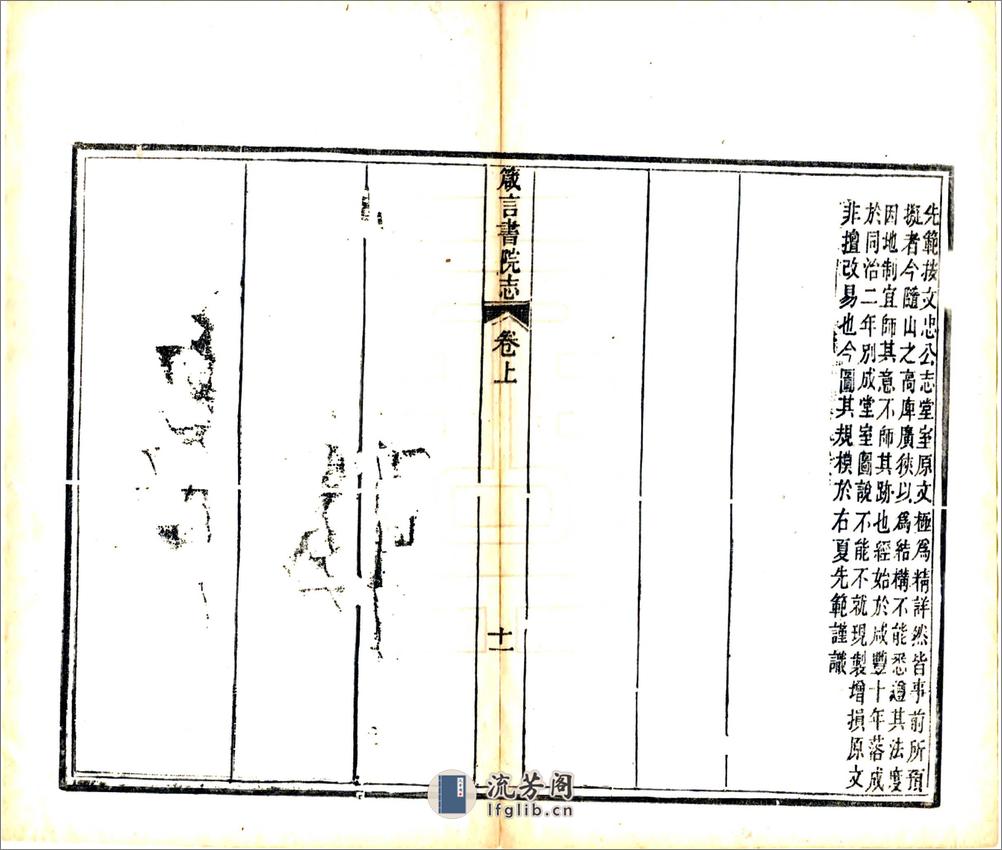 先範按文忠公志堂室原文極爲精詳然皆事前所預
擬者今隨山之高庳廣狹以爲結構不能悉遵其法度
因地制宜師其意不師其跡也經始於咸豐十年落成
於同治二年別成堂室圖說不能不就現製增損原文
非擅改易也今圖其規模於右夏先範謹識
箴言書院志
卷上
十一
流芳阁
lfglib.cn